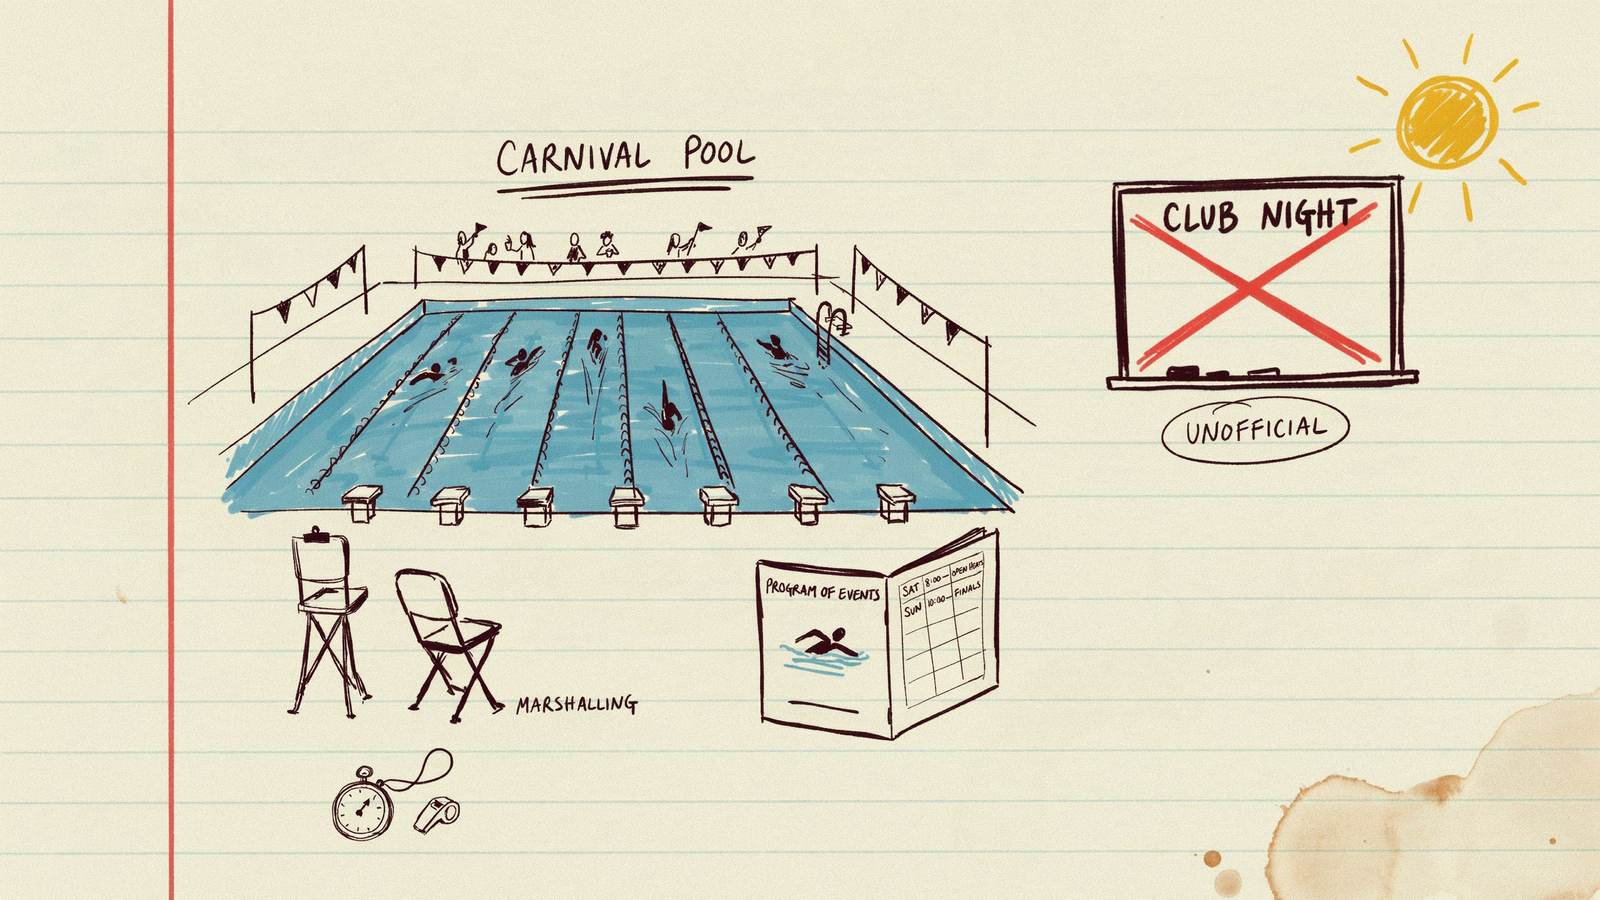 CARNIVAL POOL
CLUB NIGHT
UNOFFICIAL
PROGRAM OF EVENTS
SAT 8:00— OPEN HEATS
SUN 10:00— FINALS
MARSHALLING